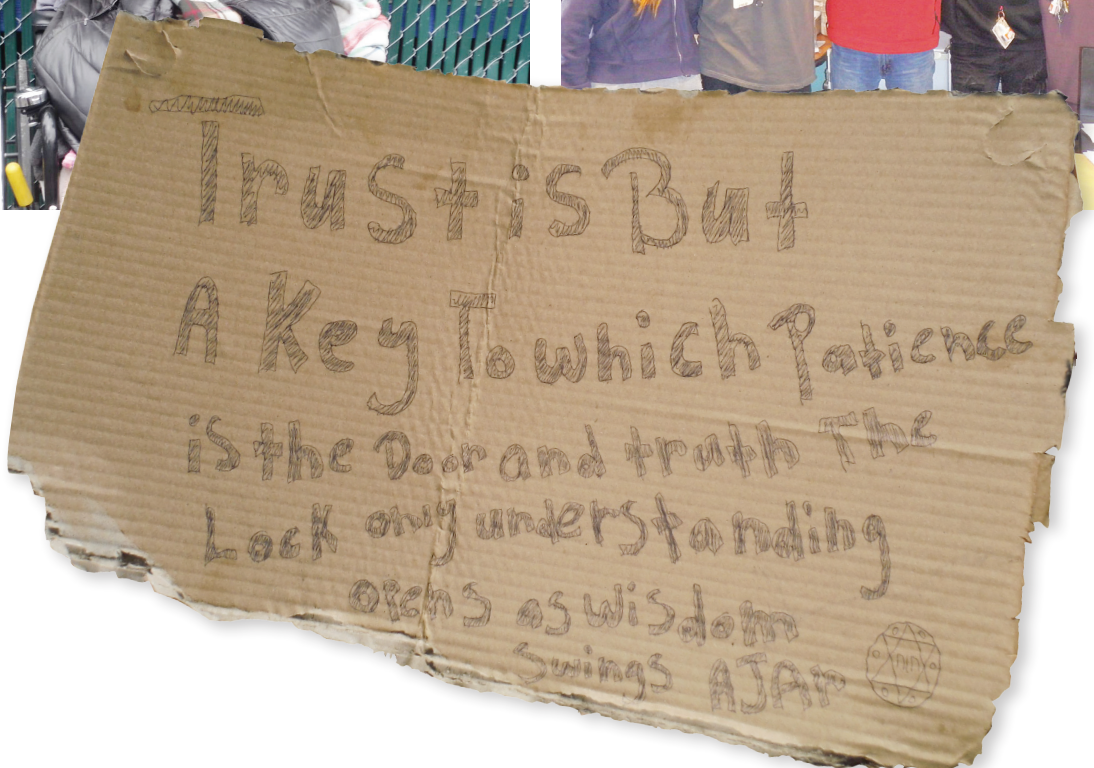 Trust is But
A Key To which Patience
is the Door and truth The
Lock only understanding
opens as wisdom
Swings AJAr